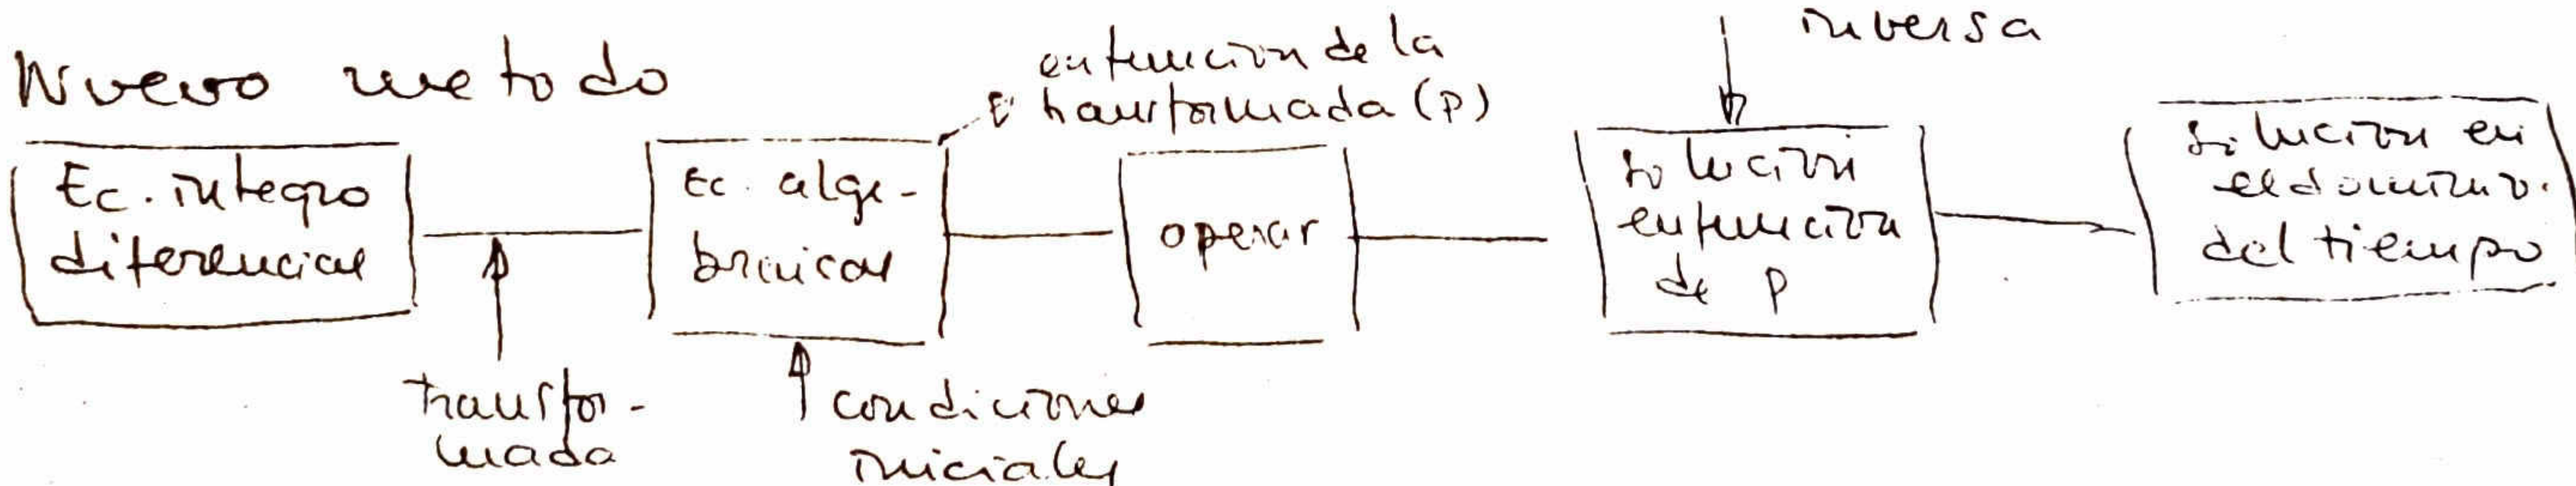 inversa
Nuevo metodo
en funcion de la
transformada (P)
Ec. integro
diferencial
Ec. alge-
braicas
operar
solución
en función
de p
solución en
el dominio
del tiempo
transfor-
mada
condiciones
iniciales